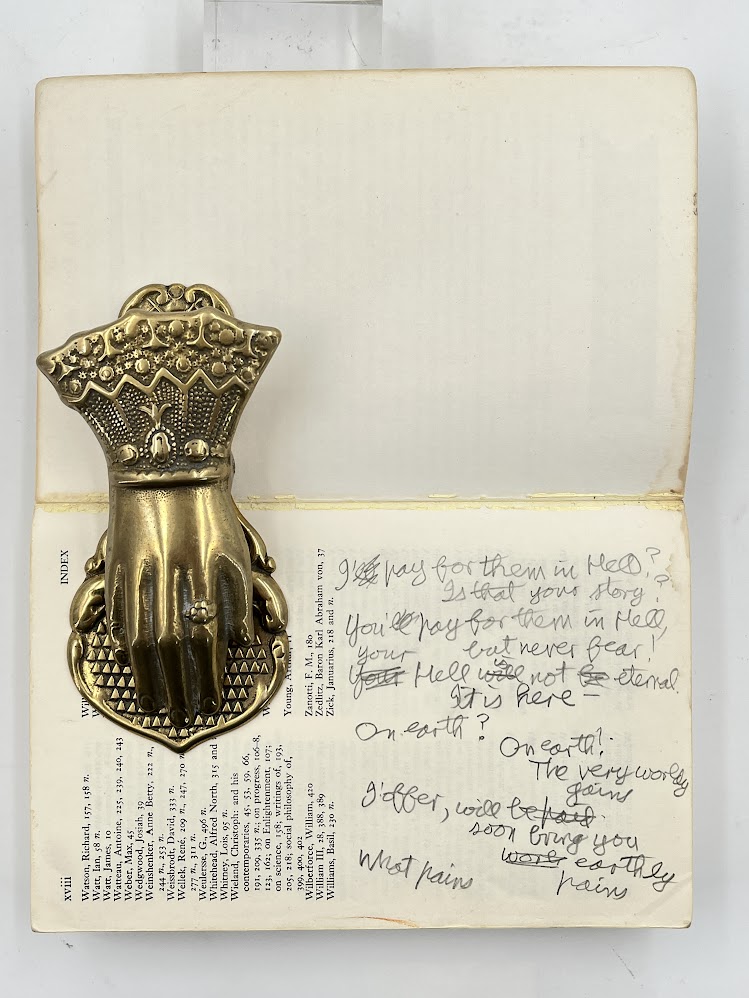 XVIII INDEX
Watson, Richard, 157, 158 n.
Watt, Ian, 58 n.
Watt, James, 10
Watteau, Antoine, 225, 239, 240, 243
Weber, Max, 45
Wedgwood, Josiah, 39
Weinshenker, Anne Betty, 222 n.,
244 n., 253 n.
Weissbrodt, David, 333 n.
Wellek, René, 209 n., 247, 270 n.
277 n., 311 n.
Weulersse, G., 496 n.
Whitehead, Alfred North, 315 and
Whitney, Lois, 95 n.
Wieland, Christoph: and his
contemporaries, 45, 53, 59, 66,
191, 209, 335 n.; on progress, 106-8,
123, 162; on Enlightenment, 107;
on science, 158; writings of, 193,
205, 218; social philosophy of,
399, 400, 402
Wilberforce, William, 420
William III, 28, 188, 389
Williams, Basil, 230 n.
Young, Arthur,
Zanotti, F. M., 180
Zedlitz, Baron Karl Abraham von, 37
Zick, Januarius, 218 and n.
I'll pay for them in Hell?
Is that your story?
You'll pay for them in Hell,
your but never fear!
Your Hell will not be eternal.
It is here –
On earth?
On earth!
The very worldly
gains
I offer, will be paid
soon bring you
What pains earthly
pains